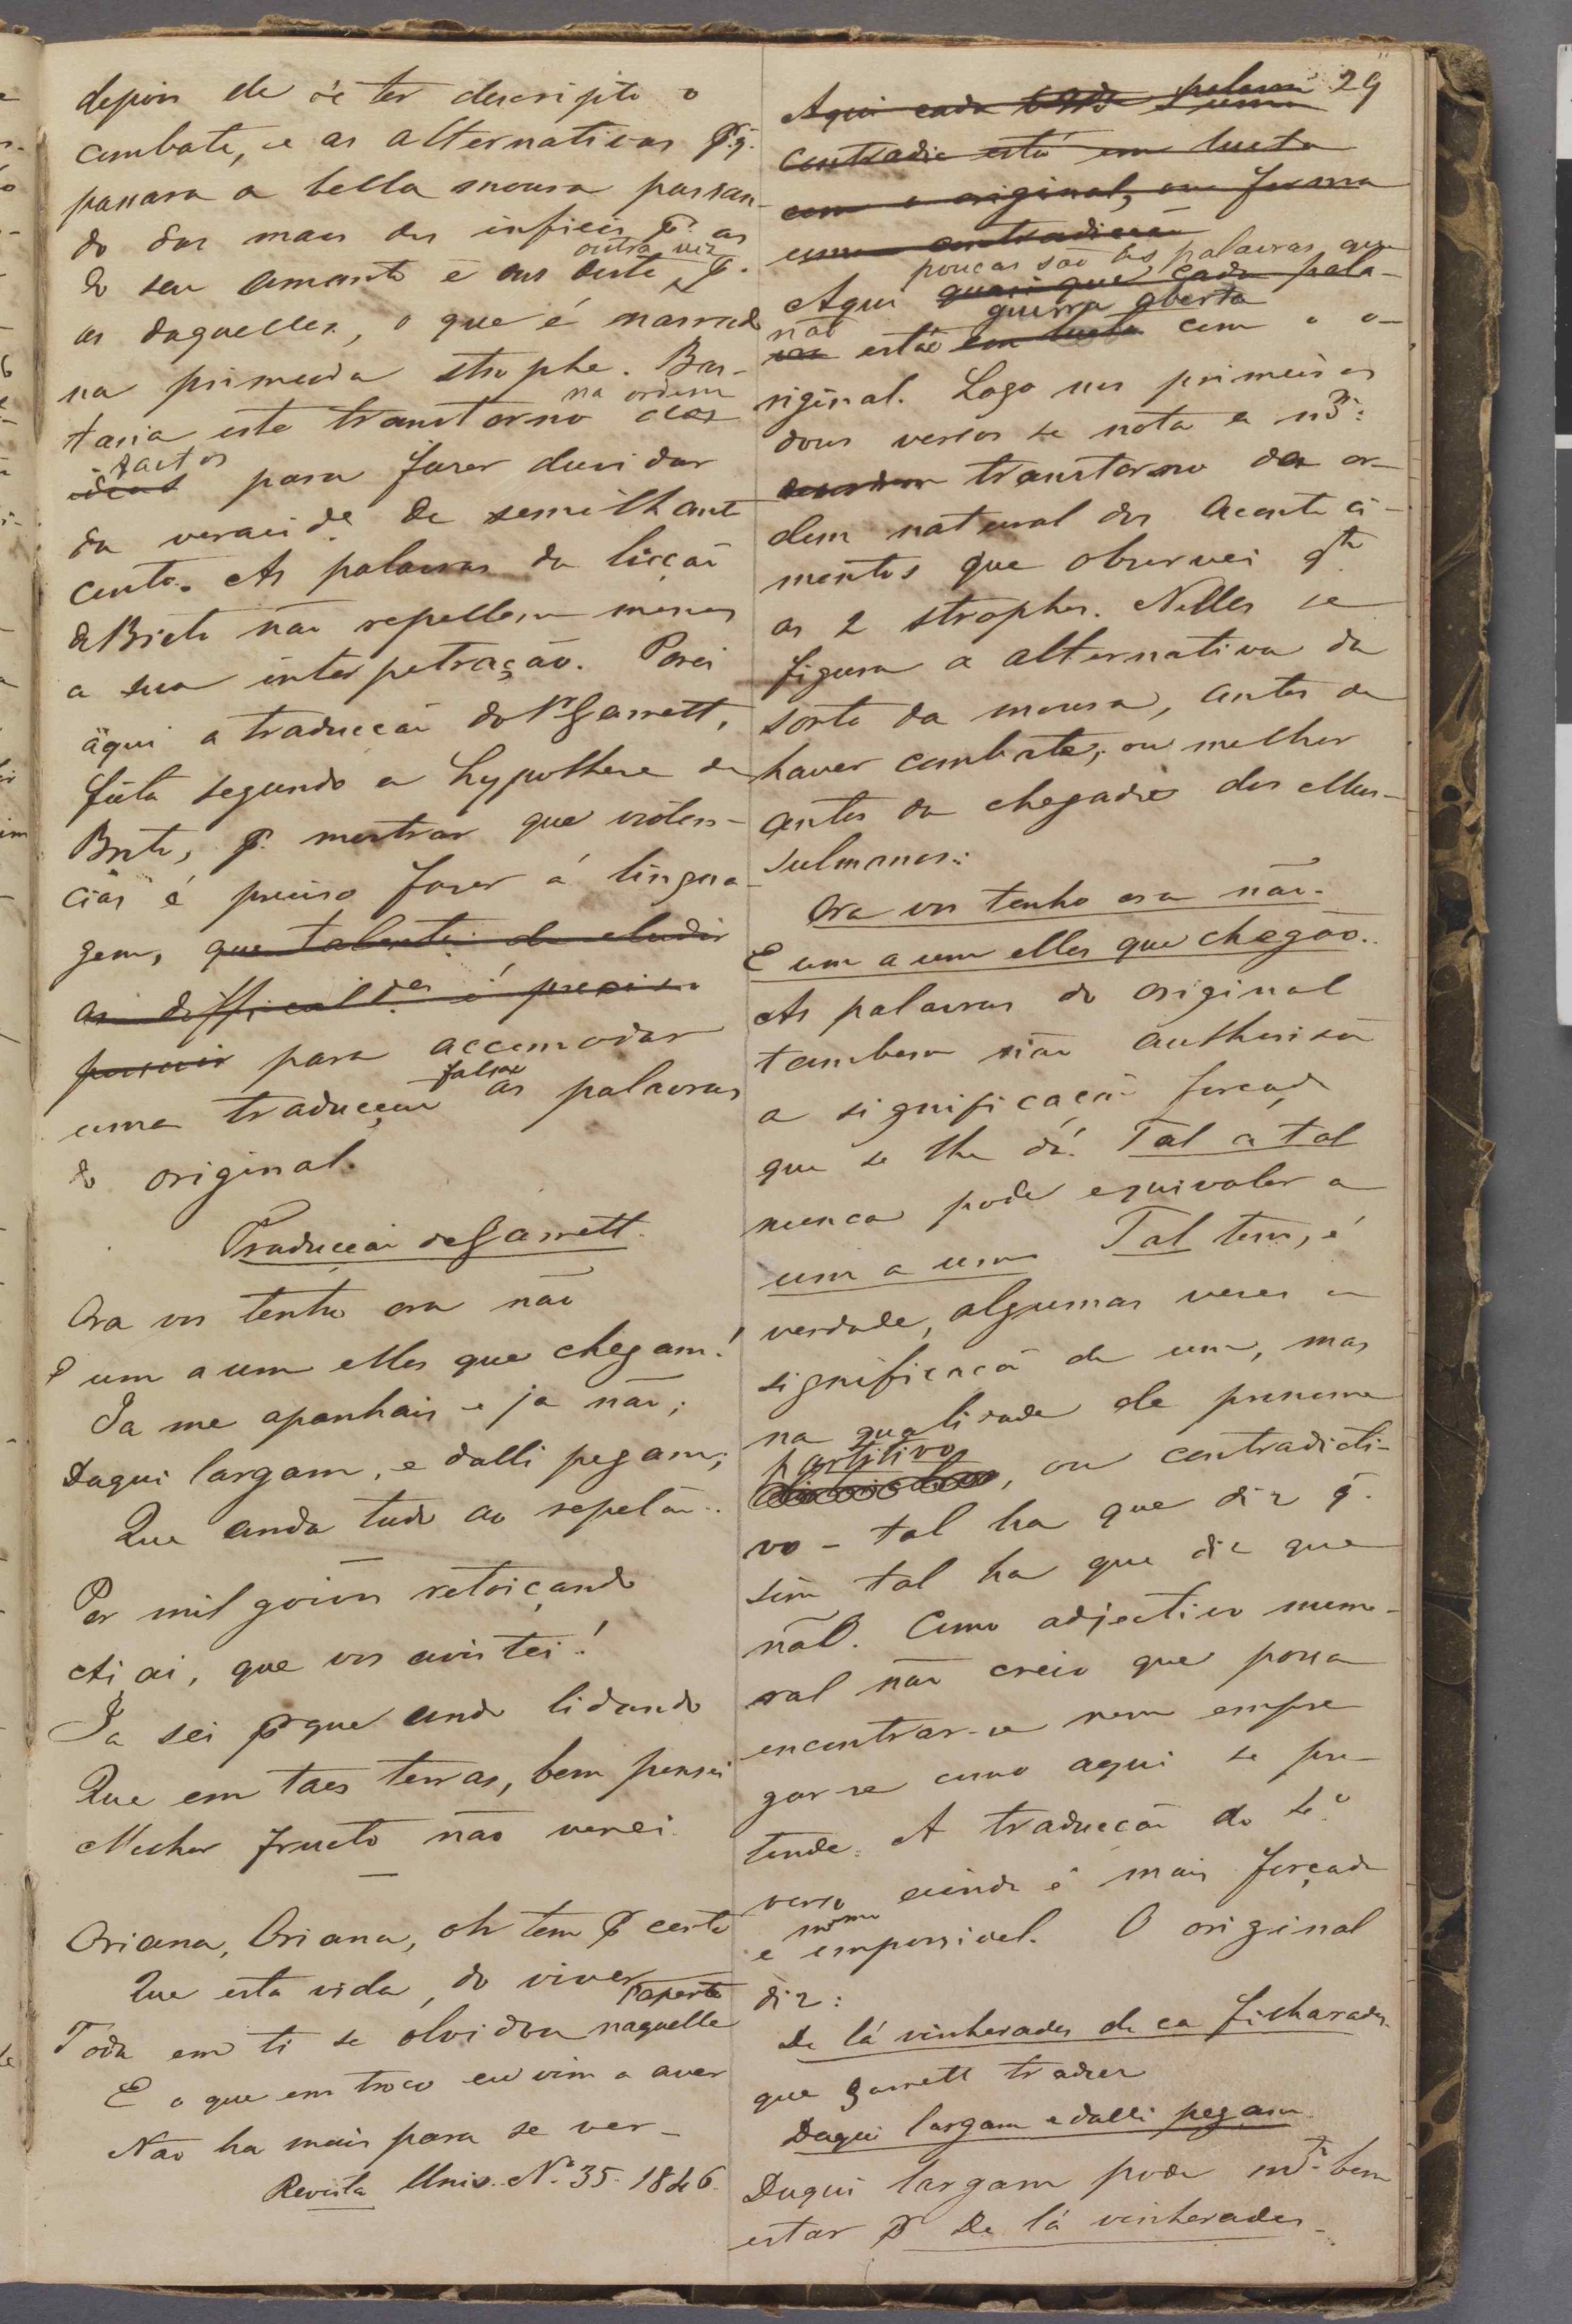 depois de se ter descripto o
combate, e as alternativas p. q.
passara a bella moura passan-
do das maos dos infieis p.ª as
do seu amante e das deste outra vez p.ª
as daquelles, o que é narrado
na primeira strophe. Bas-
taria este transtorno na ordem dos
factos para fazer duvidar
da veracid.e de semilhante
canto. As palavras da licçaõ
de Brito naõ repellem menos
a sua interpetração. Porei
aqui a traducçaõ do Sr Garrett,
feita segundo a hypothese de
Brito, p.ª mostrar que violen-
cias é preciso fazer á lingua-
gem, que talento de eludir
as difficuld.es é preciso
possuir para accomodar
uma traducçaõ falsa as palavras
do original.
Traducçaõ de Garrett.
Ora vos tenho ora não
E um a um elles que chegam!
Ja me apanhais e ja não;
Daqui largam, e dalli pegam;
Que anda tudo ao repelaõ..
Por mil goivos retoiçando
Ai ai, que vos avistei!
Ja sei porque ando lidando
Que em taes terras, bem pensei
Melhor fructo não verei.
Oriana, Oriana, oh tem por certo
Que esta vida, do viver
Toda em ti se olvidou naquelle aperto
E o que em troco eu vim a aver
Não ha mais para se ver_
Revista Univ. N.º 35. 1846.
29
Aqui cada palavra é uma
contradic está em lucta
com o original, ou forma
uma contradicçaõ
Aqui quasi que cada pala- poucas são as palavras que
vra não estão em lucta guerra aberta com o o-
riginal. Logo nos primeiros
dous versos se nota o m.mo
desordem transtorno da or-
dem natural dos aconteci-
mentos que observei q.to
as 2 strophes. Nelles se
figura a alternativa da
sorte da moura, antes de
haver combate, ou melhor
antes da chegada dos Mus-
sulmanos:
Ora vos tenho ora não.
E um a um elles que chegão..
As palavras do original
tambem não authorisaõ
a significaçaõ forçada
que se lhe dá. Tal a tal
nunca pode equivaler a
um a um. Tal tem, é
verdade, algumas vezes a
significaçaõ de um, mas
na qualidade de pronome
partitivo, ou contradicti-
vo – tal ha que diz q.
sim tal ha que diz que
não. Como adjectivo nume-
ral não creio que possa
encontrar-se nem empre
gar-se como aqui se pre-
tende. A traducçaõ do 4.º
verso ainda é mais forçada
e mesmo impossivel. O original
diz:
De lá vinherades de ca filharades
que Garrett traduz
Daqui largam e dalli pegam.
Daqui largam pode m.to bem
estar por De lá vinherades_